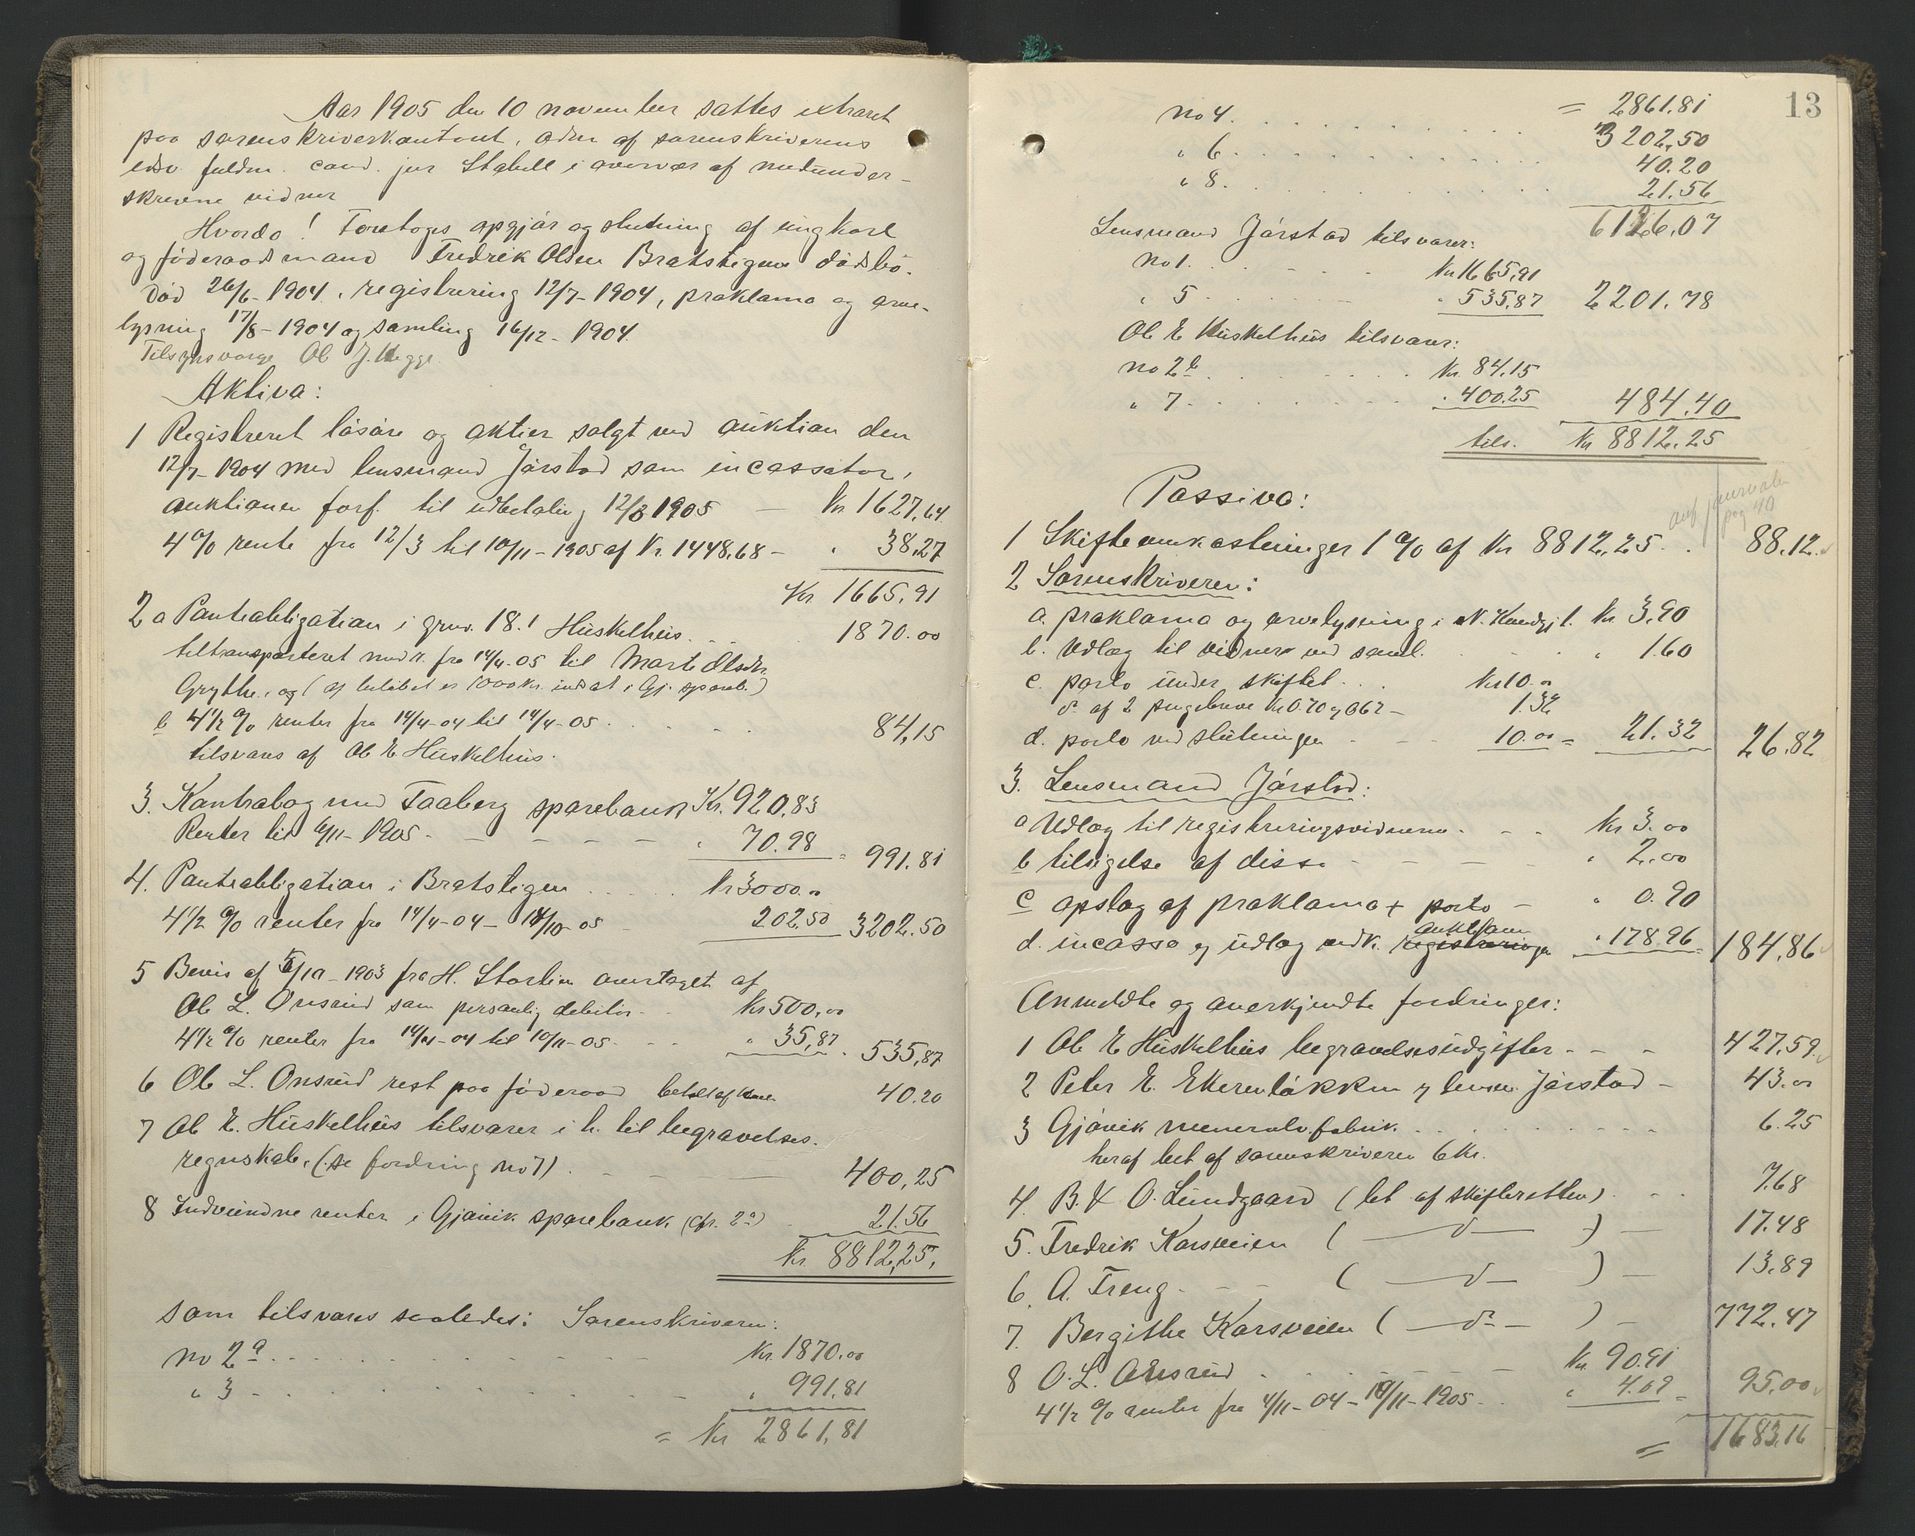 Aar 1905 den 10 november sattes extraret
paa sorenskriverkontoret, adm af sorenskriverens
edsv. fuldm. cand. jur Stabell i overvær af medunder-
skrevne vidner
Hvorda! Foretoges opgjør og slutning af ungkarl
og føderaadsmand Fredrik Olsen Bratstigens dødsbo.
Død 26/6-1904, registrering 12/7-1904, proklama og arve-
lysning 17/8-1904 og samling 16/12-1904.
Tilsynsværge Ole J.
Aktiva:
1 Registreret løsøre og aktier solgt ved auktion den
12/7-1904 med lensmand Jørstad som incassator,
auktionen forf. til udbetaling 12/3 1905 — Kr 1627,64
4 % rente fra 12/3 til 10/11-1905 af Kr. 1448,68 — " 38,27
Kr 1665,91
2 a Pantobligation i grno. 18.1 Huskelhus. . . 1870.00
tiltransporteret med r. fra 14/4-05 til Marte Olsdtr.
Grythe, og (af beløbet er 1000 kr. indsat i Gj. spareb.)
b 4 1/2 % renter fra 14/4-04 til 14/4-05 . . . . 84,15
tilsvares af Ole E Huskelhus.
3. Kontrabog med Faaberg sparebank Kr. 920,83
Renter til 6/11-1905. — — — — " 70.98 = 991.81
4. Pantobligation i Bratstigen . . . . . Kr 3000.00
4 1/2 % renter fra 14/4-04 — 14/10-05 — 202,50 3202.50
5 Bevis af 5/10-1903 fra H. Storlien overtaget af
Ole L. Onsrud som personlig debitor — Kr 500,00
4 1/2 % renter fra 14/4-04 til 10/11-05. — " 35,87 . 535,87
6 Ole L. Onsrud rest paa føderaad 40.20
7 Ole E. Huskelhus tilsvarer i h. til begravelses.
regnskab. (se fordring no 1) . — — — 400,25
8 Indvundne renter i Gjøvik sparebank (cfr. 2a) . 21.56
Kr 8812,25.
som tilsvares saaledes: Sorenskriveren:
No 2a . . . . . — — — Kr. 1870.00
" 3 — . . . . . . . — — " 991,81
= Kr 2861,81
13
no 4. . . . . . . . . . . = 2861.81
3202,50
" 6 . . . . . . . . . . . . 40.20
" 8 . . . . . . . . . . . . 21.56
6126,07
Lensmand Jørstad tilsvarer:
no 1. . . . — — . Kr 1665,91
" 5 . . . . . . — . " 535,87 2201.78
Ole E Huskelhus tilsvarer:
no 2b . . . . . . . . . Kr. 84.15
" 7 — . . . . . . . . . " 400.25 484.40
tils. Kr 8812.25
Passiva:
anf. journalen
pag 40
1 Skifteomkostninger 1 % af Kr 8812,25 . . 88.12
2 Sorenskriveren:
a. proklama og arvelysning i N. Kundgj. t. Kr 3,90
b. Udlæg til vidner ved saml. . . . . " 1.60
c. porto under skiftet . . . Kr 10.00
do af 2 pengebreve Kr 0.70 og 0.62 — 1.32
d. porto ved slutningen — — 10.00 = 21.32 26.82
3. Lensmand Jørstad:
a Udlæg til registreringsvidnerne. — — Kr 3.00
b tilsigelse af disse — — — — " 2.00
c opslag af proklama + porto — " 0.90
auktionen
d. incasso og udlæg vedk. registreringen " 178.96 = 184,86
Anmeldte og anerkjendte fordringer:
1 Ole E Huskelhus begravelsesudgifter — — — 427,59
2 Peter E. Ekernløkken og lensm. Jørstad — 43.00
3 Gjøvik mineralv. fabrik . . . . . . . — — — 6.25
heraf bet af sorenskriveren 6 Kr.
4. B. & O. Lundgaard (bet af skifteretten) . — — 7.68
5. Fredrik Karsveien ( — do — ) — 17.48
6. A. Freng. — — ( — do — ) — 13,89
7. Bergithe Karsveien ( — do — ) — 772.47
8 O. L. Onsrud . . . . . . — Kr. 90.91
4 1/2 % renter fra 4/11-04 — 10/11-1905 . . " 4.09 = 95,00
= 1683,16